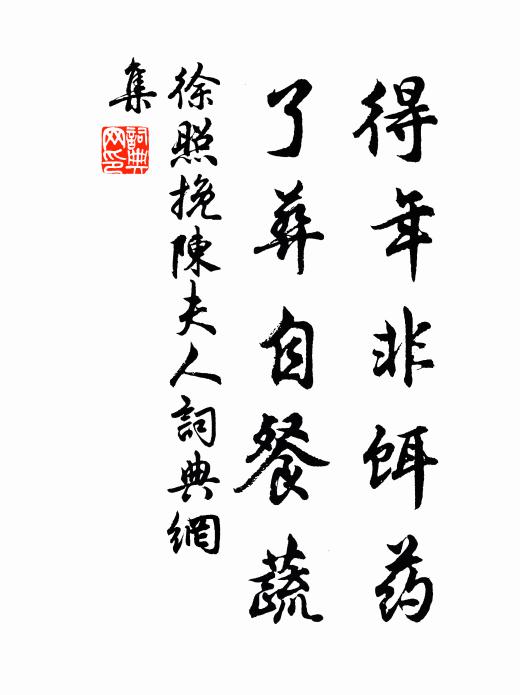 得年非饵药
了葬自餐蔬
徐照挽陳夫人詞典網
集
詞典网印